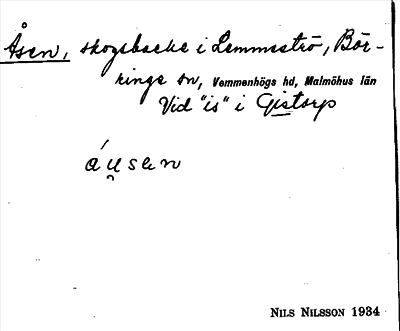 Åsen, skogsbacke i Lemmeströ, Bör-
ringe sn, Vemmenhögs hd, Malmöhus län
Vid "is" i Gistorp
áu̯sen
NILS NILSSON 1934